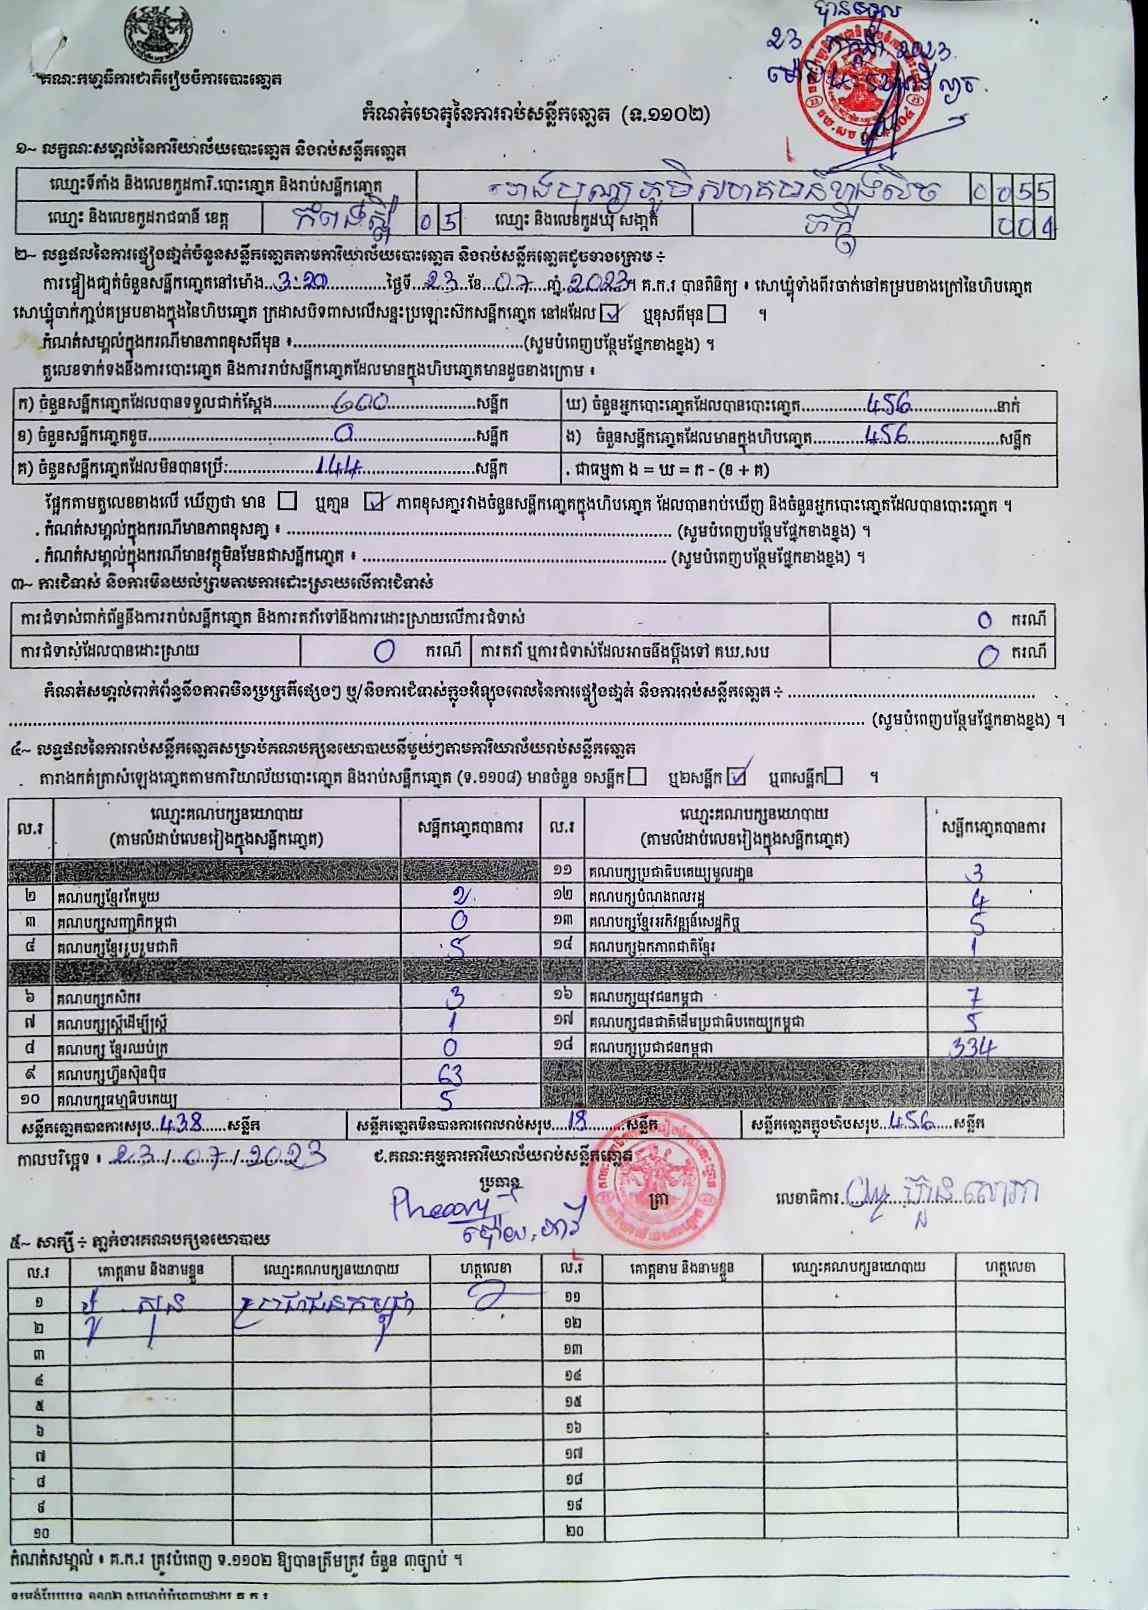 បានទទួល
23 កក្កដា 2023
គណៈកម្មាធិការជាតិរៀបចំការបោះឆ្នោត
កំណត់ហេតុនៃការរាប់សន្លឹកឆ្នោត (ទ.១១០២)
១~ លក្ខណៈសម្គាល់នៃការិយាល័យបោះឆ្នោត និងរាប់សន្លឹកឆ្នោត
ឈ្មោះទីតាំង និងលេខកូដការិ.បោះឆ្នោត និងរាប់សន្លឹកឆ្នោត 0055
ឈ្មោះ និងលេខកូដរាជធានី ខេត្ត កំពង់ស្ពឺ 05 ឈ្មោះ និងលេខកូដឃុំ សង្កាត់ 004
២~ លទ្ធផលនៃការផ្ទៀងផ្ទាត់ចំនួនសន្លឹកឆ្នោតតាមការិយាល័យបោះឆ្នោត និងរាប់សន្លឹកឆ្នោតដូចខាងក្រោម ÷
ការផ្ទៀងផ្ទាត់ចំនួនសន្លឹកឆ្នោតនៅម៉ោង..3:20..ថ្ងៃទី..23..ខែ..07..ឆ្នាំ.2023។ គ.ក.រ បានពិនិត្យ ៖ សោឃ្មុំទាំងពីរចាក់នៅគម្របខាងក្រៅនៃហិបឆ្នោត
សោឃ្មុំចាក់ភ្ជាប់គម្របខាងក្នុងនៃហិបឆ្នោត ក្រដាសបិទពាសលើសន្ទះប្រឡោះស៊កសន្លឹកឆ្នោត នៅដដែល ☑ ឬខុសពីមុន ☐ ។
កំណត់សម្គាល់ក្នុងករណីមានភាពខុសពីមុន ៖..........(សូមបំពេញបន្ថែមផ្នែកខាងខ្នង) ។
តួលេខទាក់ទងនឹងការបោះឆ្នោត និងការរាប់សន្លឹកឆ្នោតដែលមានក្នុងហិបឆ្នោតមានដូចខាងក្រោម ៖
ក) ចំនួនសន្លឹកឆ្នោតដែលបានទទួលជាក់ស្តែង......600......សន្លឹក ឃ) ចំនួនអ្នកបោះឆ្នោតដែលបានបោះឆ្នោត......456......នាក់
ខ) ចំនួនសន្លឹកឆ្នោតខូច......0......សន្លឹក ង) ចំនួនសន្លឹកឆ្នោតដែលមានក្នុងហិបឆ្នោត......456......សន្លឹក
គ) ចំនួនសន្លឹកឆ្នោតដែលមិនបានប្រើ:......144......សន្លឹក . ជាធម្មតា ង = ឃ = ក - (ខ + គ)
ផ្អែកតាមតួលេខខាងលើ ឃើញថា មាន ☐ ឬគ្មាន ☑ ភាពខុសគ្នារវាងចំនួនសន្លឹកឆ្នោតក្នុងហិបឆ្នោត ដែលបានរាប់ឃើញ និងចំនួនអ្នកបោះឆ្នោតដែលបានបោះឆ្នោត ។
. កំណត់សម្គាល់ក្នុងករណីមានភាពខុសគ្នា ៖ .......... (សូមបំពេញបន្ថែមផ្នែកខាងខ្នង) ។
. កំណត់សម្គាល់ក្នុងករណីមានវត្ថុមិនមែនជាសន្លឹកឆ្នោត ៖ .......... (សូមបំពេញបន្ថែមផ្នែកខាងខ្នង) ។
៣~ ការជំទាស់ និងការមិនយល់ព្រមតាមការដោះស្រាយលើការជំទាស់
ការជំទាស់ពាក់ព័ន្ធនឹងការរាប់សន្លឹកឆ្នោត និងការតវ៉ាទៅនឹងការដោះស្រាយលើការជំទាស់ 0 ករណី
ការជំទាស់ដែលបានដោះស្រាយ 0 ករណី ការតវ៉ា ឬការជំទាស់ដែលអាចនឹងប្តឹងទៅ គឃ.សប 0 ករណី
កំណត់សម្គាល់ពាក់ព័ន្ធនឹងភាពមិនប្រក្រតីផ្សេងៗ ឬ/និងការជំទាស់ក្នុងអំឡុងពេលនៃការផ្ទៀងផ្ទាត់ និងការរាប់សន្លឹកឆ្នោត ÷ ..........
.......... (សូមបំពេញបន្ថែមផ្នែកខាងខ្នង) ។
៤~ លទ្ធផលនៃការរាប់សន្លឹកឆ្នោតសម្រាប់គណបក្សនយោបាយនីមួយៗតាមការិយាល័យរាប់សន្លឹកឆ្នោត
តារាងកត់ត្រាសំឡេងឆ្នោតតាមការិយាល័យបោះឆ្នោត និងរាប់សន្លឹកឆ្នោត (ទ.១១០៨) មានចំនួន ១សន្លឹក ☐ ឬ២សន្លឹក ☑ ឬ៣សន្លឹក ☐ ។
ល.រ ឈ្មោះគណបក្សនយោបាយ (តាមលំដាប់លេខរៀងក្នុងសន្លឹកឆ្នោត) សន្លឹកឆ្នោតបានការ ល.រ ឈ្មោះគណបក្សនយោបាយ (តាមលំដាប់លេខរៀងក្នុងសន្លឹកឆ្នោត) សន្លឹកឆ្នោតបានការ
១១ គណបក្សប្រជាធិបតេយ្យមូលដ្ឋាន 3
២ គណបក្សខ្មែរតែមួយ 2 ១២ គណបក្សបំណងពលរដ្ឋ 4
៣ គណបក្សសញ្ជាតិកម្ពុជា 0 ១៣ គណបក្សខ្មែរអភិវឌ្ឍន៍សេដ្ឋកិច្ច 5
៤ គណបក្សខ្មែររួបរួមជាតិ 5 ១៤ គណបក្សឯកភាពជាតិខ្មែរ 1
៦ គណបក្សកសិករ 3 ១៦ គណបក្សយុវជនកម្ពុជា 7
៧ គណបក្សស្ត្រីដើម្បីស្ត្រី 1 ១៧ គណបក្សជនជាតិដើមប្រជាធិបតេយ្យកម្ពុជា 5
៨ គណបក្ស ខ្មែរឈប់ក្រ 0 ១៨ គណបក្សប្រជាជនកម្ពុជា 334
៩ គណបក្សហ៊្វុនស៊ិនប៉ិច 63
១០ គណបក្សធម្មាធិបតេយ្យ 5
សន្លឹកឆ្នោតបានការសរុប..438......សន្លឹក សន្លឹកឆ្នោតមិនបានការពេលរាប់សរុប..18......សន្លឹក សន្លឹកឆ្នោតក្នុងហិបសរុប..456....សន្លឹក
កាលបរិច្ឆេទ ៖ .23./.07./.2023 ជ.គណៈកម្មការការិយាល័យរាប់សន្លឹកឆ្នោត
ប្រធាន ត្រា លេខាធិការ
Pheary
៥~ សាក្សី ÷ ភ្នាក់ងារគណបក្សនយោបាយ
ល.រ គោត្តនាម និងនាមខ្លួន ឈ្មោះគណបក្សនយោបាយ ហត្ថលេខា ល.រ គោត្តនាម និងនាមខ្លួន ឈ្មោះគណបក្សនយោបាយ ហត្ថលេខា
១ ប៉ូ សុន ប្រជាជនកម្ពុជា ១១
២ ១២
៣ ១៣
៤ ១៤
៥ ១៥
៦ ១៦
៧ ១៧
៨ ១៨
៩ ១៩
១០ ២០
កំណត់សម្គាល់ ៖ គ.ក.រ ត្រូវបំពេញ ទ.១១០២ ឱ្យបានត្រឹមត្រូវ ចំនួន ៣ច្បាប់ ។